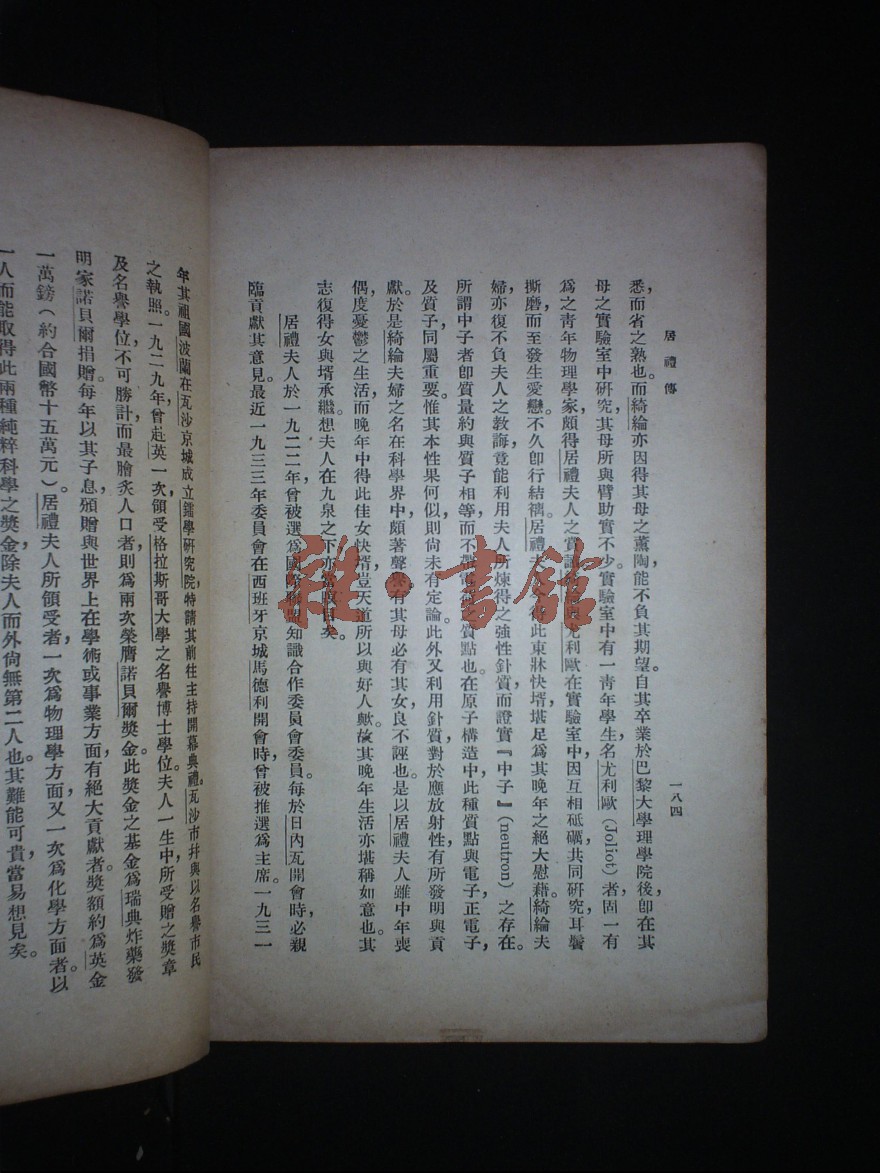 居禮傳
一八四
悉而省之熟也。而綺綸亦因得其母之薰陶，能不負其期望。自其卒業於巴黎大學理學院後，卽在其
母之實驗室中硏究，其母所與臂助實不少。實驗室中有一靑年學生名尤利歐（Joliot）者，固一有
爲之靑年物理學家，頗得居禮夫人之賞識。尤利歐在實驗室中，因互相砥礪，共同硏究，耳鬢
撕磨，而至發生愛戀。不久卽行結褵。居禮夫人得此東牀快壻，堪足爲其晚年之絕大慰藉。綺綸夫
婦，亦復不負夫人之教誨，竟能利用夫人所煉得之強性針質，而證實『中子』（neutron）之存在。
所謂中子者，卽質量約與質子相等，而不帶電荷之質點也。在原子構造中，此種質點與電子，正電子，
及質子，同屬重要。惟其本性果何似，則尙未有定論。此外又利用針質，對於應放射性有所發明與貢
獻。於是綺綸夫婦之名，在科學界中，頗著聲譽。有其母必有其女，良不誣也。是以居禮夫人雖中年喪
偶，度憂鬱之生活，而晚年中得此佳女快壻，豈天道所以與好人歟。故其晚年生活，亦堪稱如意也。其
志復得女與壻承繼，想夫人在九泉之下，亦當瞑目矣。
居禮夫人於一九二二年曾被選爲國際聯盟知識合作委員會委員。每於日內瓦開會時，必親
臨貢獻其意見。最近一九三三年委員會在西班牙京城馬德利開會時，曾被推選爲主席。一九三一
年其祖國波蘭在瓦沙京城成立鐳學硏究院，特請其前往主持開幕典禮。瓦沙市幷與以名譽市民
之執照。一九二九年曾赴英一次，領受格拉斯哥大學之名譽博士學位。夫人一生中，所受贈之獎章
及名譽學位，不可勝計，而最膾炙人口者，則爲兩次榮膺諾貝爾獎金。此獎金之基金爲瑞典炸藥發
明家諾貝爾捐贈，每年以其子息，頒贈與世界上在學術或事業方面，有絕大貢獻者。獎額約爲英金
一萬鎊（約合國幣十五萬元）。居禮夫人所領受者，一次爲物理學方面，又一次爲化學方面者。以
一人而能取得此兩種純粹科學之獎金，除夫人而外，尙無第二人也。其難能可貴，當易想見矣。